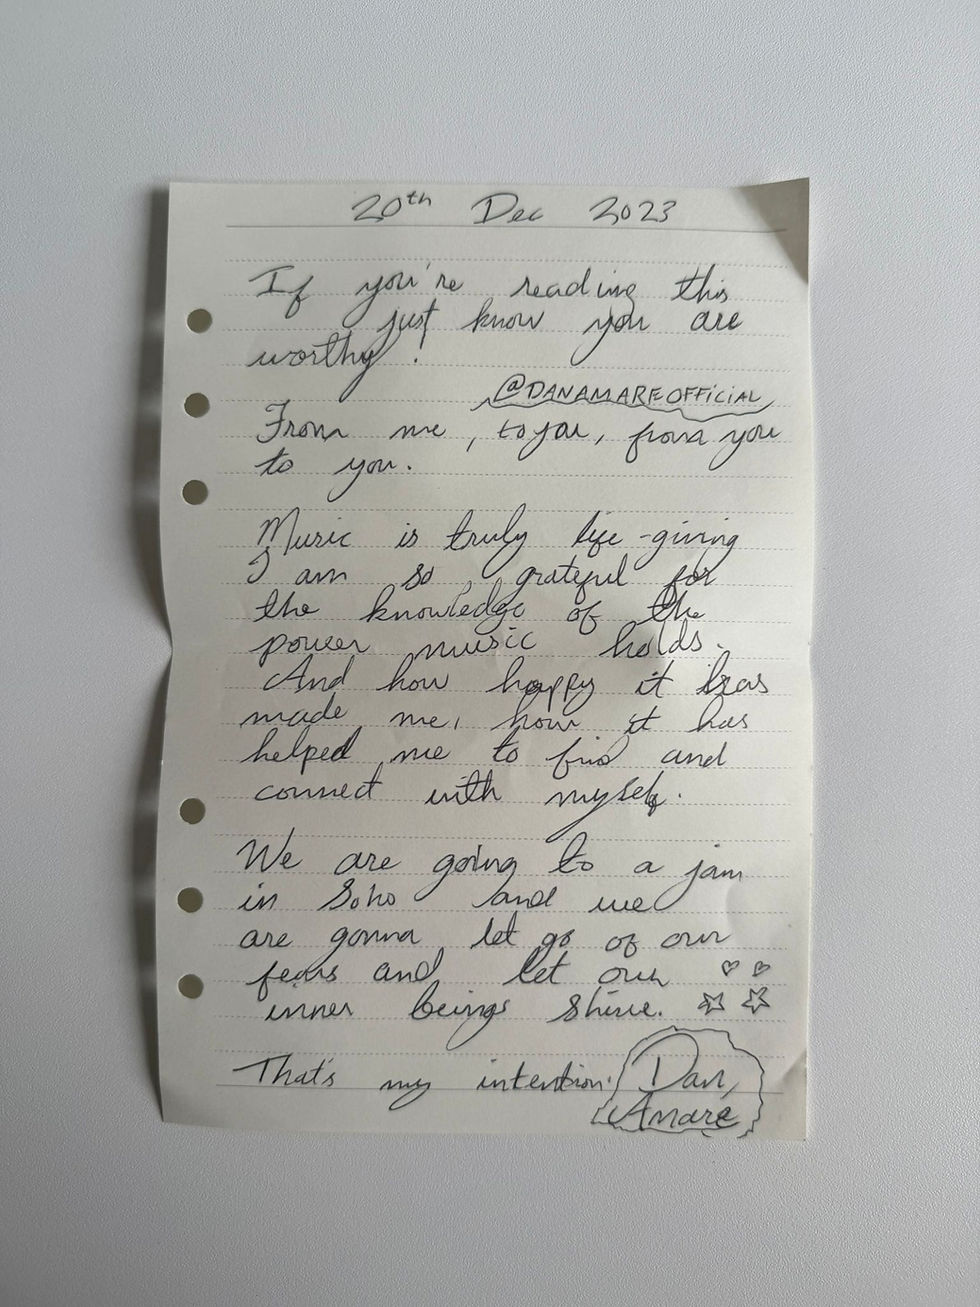 20th Dec 2023
If you're reading this
just know you are
worthy!
@DANAMAREOFFICIAL
From me, to you, from you
to you.
Music is truly life-giving
I am so grateful for
the knowledge of the
power music holds.
And how happy it has
made me, how it has
helped me to find and
connect with myself.
We are going to a jam
in Soho and we
are gonna let go of our
fears and let our
inner beings shine.
That's my intention.
Dan,
Amare